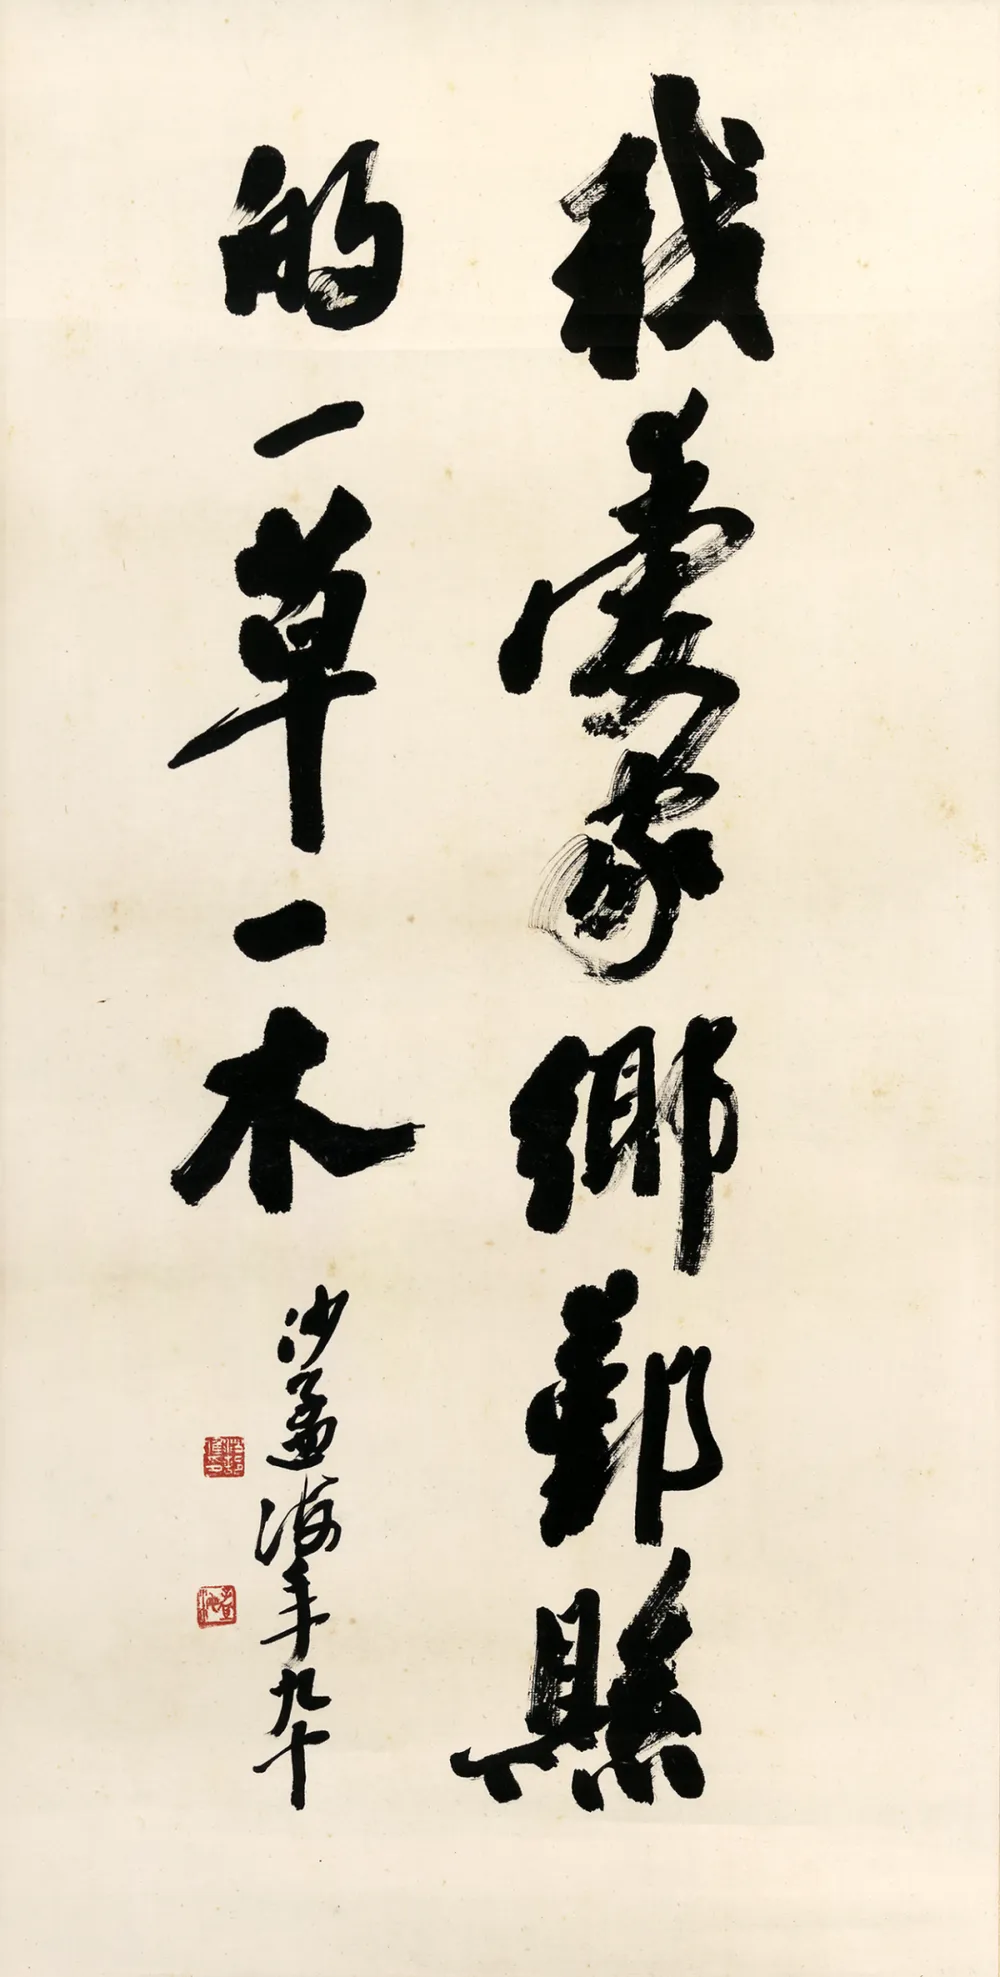 我爱家鄉鄞縣
的一草一木
沙孟海年九十